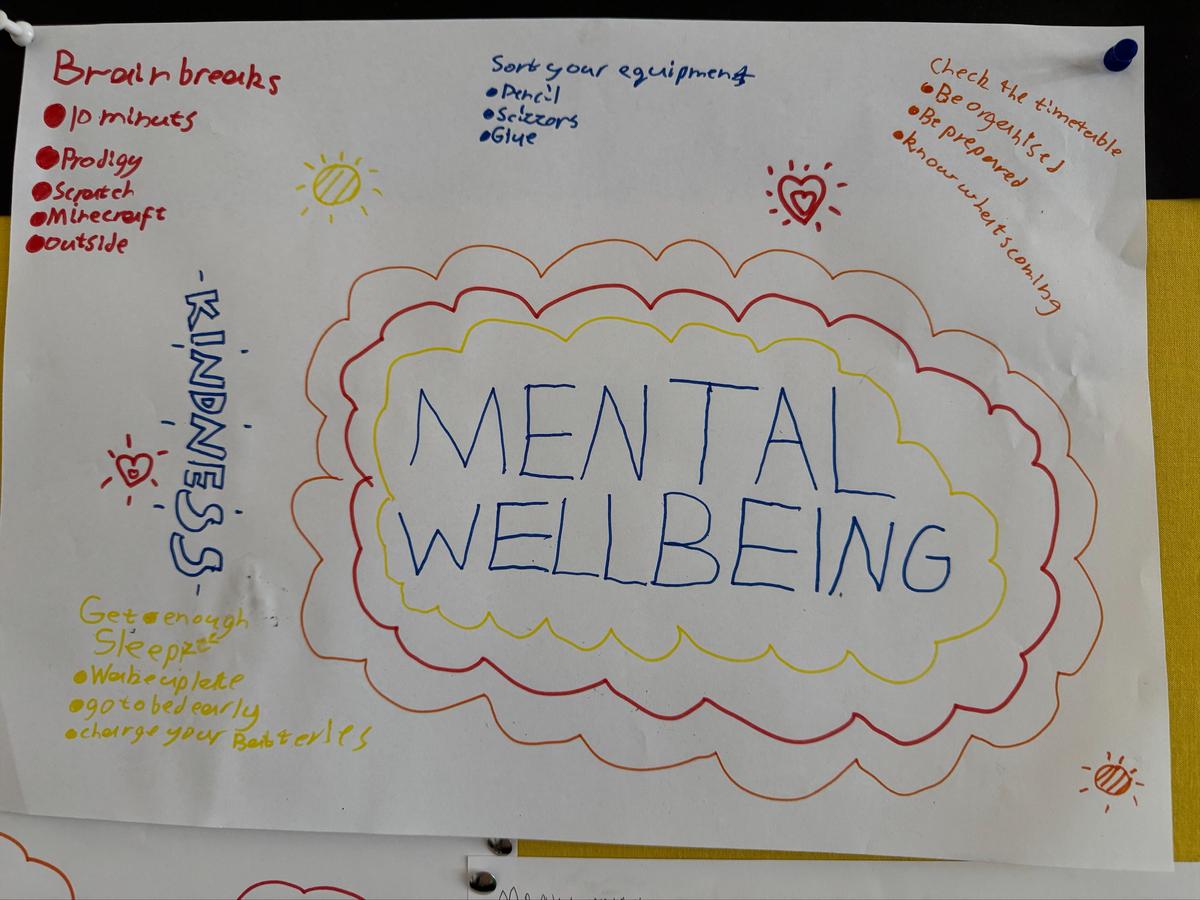 Brain breaks
10 minuts
Prodigy
Scratch
Minecraft
outside
Sort your equipment
Pencil
Scizzors
Glue
Check the timetable
Be orgenised
Be prepared
know whats coming
KINDNESS
MENTAL
WELLBEING
Get enough
Sleepzzz
Wake up late
go to bed early
charge your Batteries